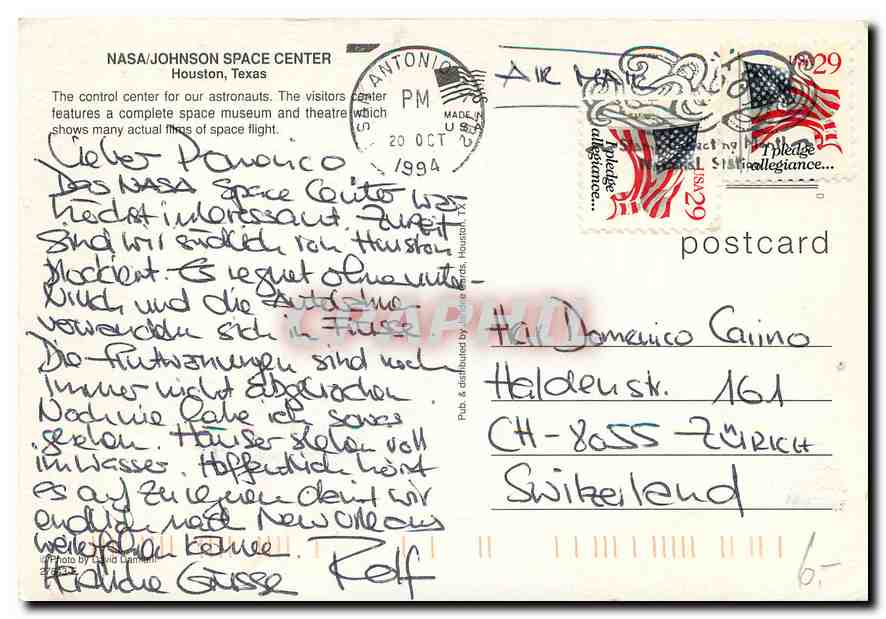 NASA/JOHNSON SPACE CENTER
Houston, Texas
The control center for our astronauts. The visitors center
features a complete space museum and theatre which
shows many actual films of space flight.
Lieber Domenico
Das NASA Space Center war
höchst interessant. Zurzeit
sind wir südlich von Houston
blockiert. Es regnet ohne unter-
bruch und die Autobahnen
verwandeln sich in Flüsse
Die Flutwarnungen sind noch
immer nicht abgebrochen
Noch nie habe ich sowas
gesehen. Häuser stehen voll
im Wasser. Hoffentlich hört
es auf zu regnen damit wir
endlich nach New Orleans
weiterfahren können.
Herzliche Grüsse Rolf
©Photo by David Damian
Pub. & distributed by Cards, Houston, TX
SAN ANTONIO
PM
20 OCT
1994
MADE
U.S.
AIR MAIL
Stamp Collecting Month
Station
USA 29
I pledge
allegiance...
USA 29
I pledge
allegiance...
postcard
Herr Domenico Carino
Haldenstr. 161
CH-8055-ZÜRICH
Switzerland
6.-
CPAPHIL